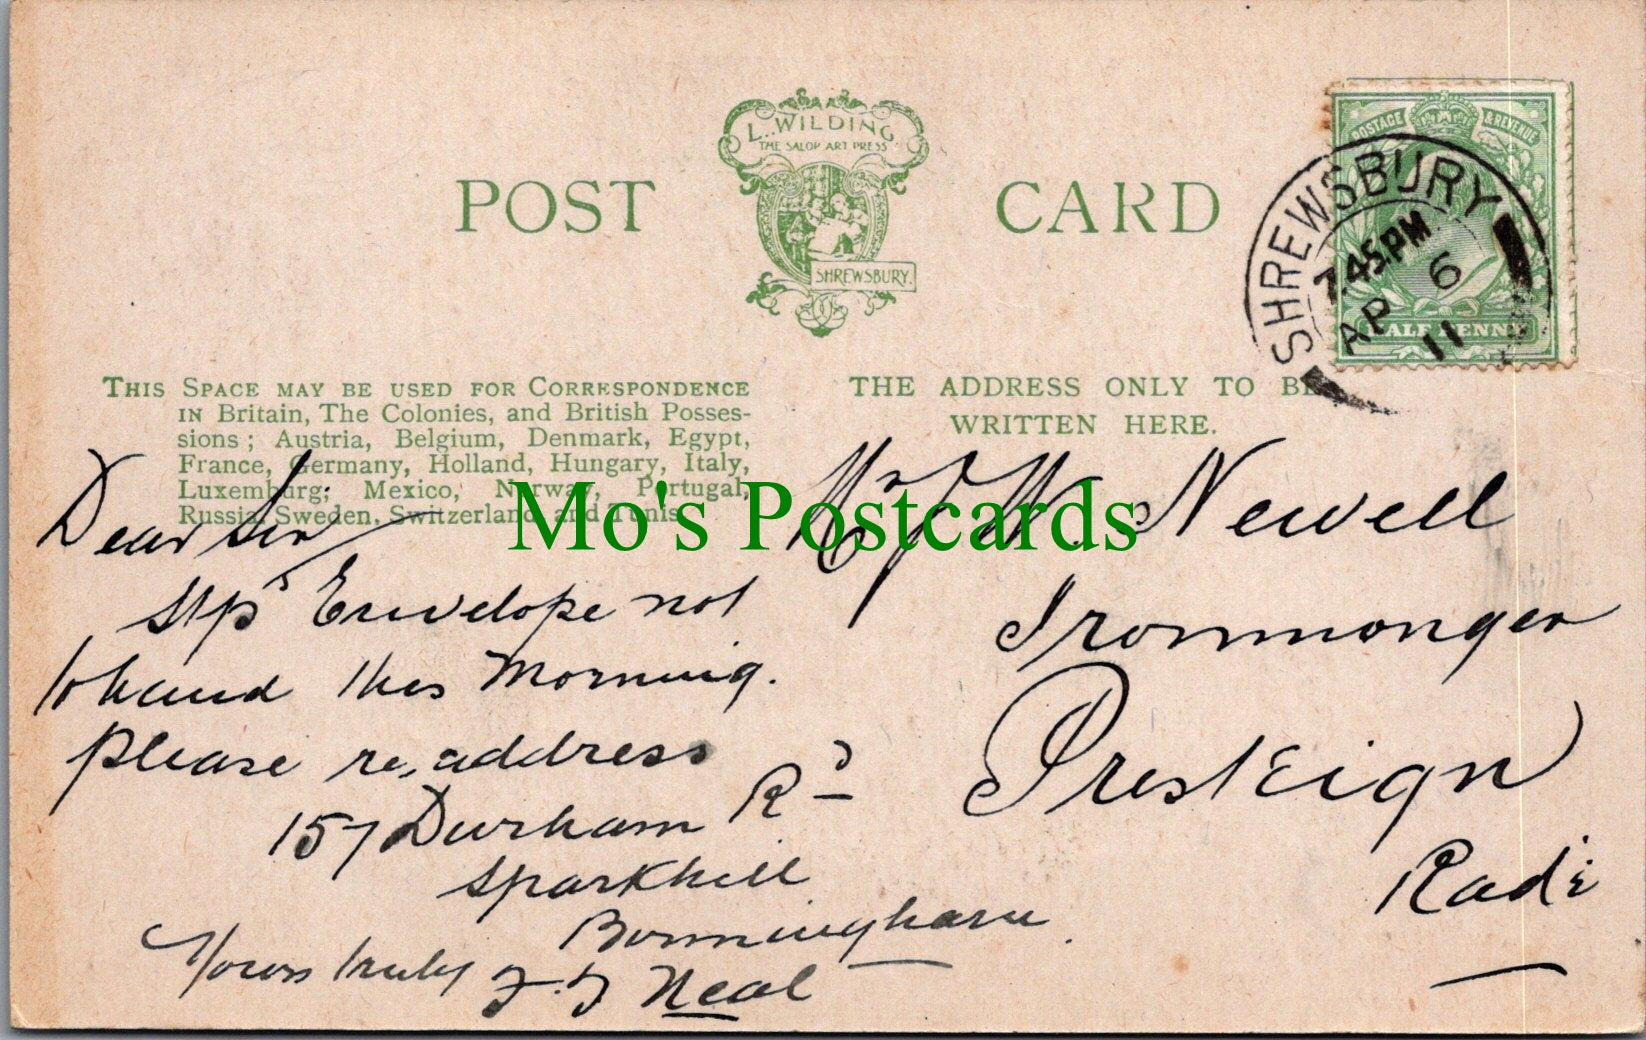 L. WILDING
THE SALOP ART PRESS
SHREWSBURY.
POST CARD
POSTAGE & REVENUE
HALFPENNY
SHREWSBURY
7.45.PM
AP 6
11
THIS SPACE MAY BE USED FOR CORRESPONDENCE
IN Britain, The Colonies, and British Posses-
sions; Austria, Belgium, Denmark, Egypt,
France, Germany, Holland, Hungary, Italy,
Luxemburg; Mexico, Norway, Portugal,
Russia, Sweden, Switzerland, and Tunis.
THE ADDRESS ONLY TO BE
WRITTEN HERE.
Mo's Postcards
Dear Sir
Envelope not
to hand this Morning.
please re, address
157 Durham Rd
Sparkhill
Birmingham
Yours truly J. Neal
Mr W. Newell
Ironmonger
Presteign
Rad